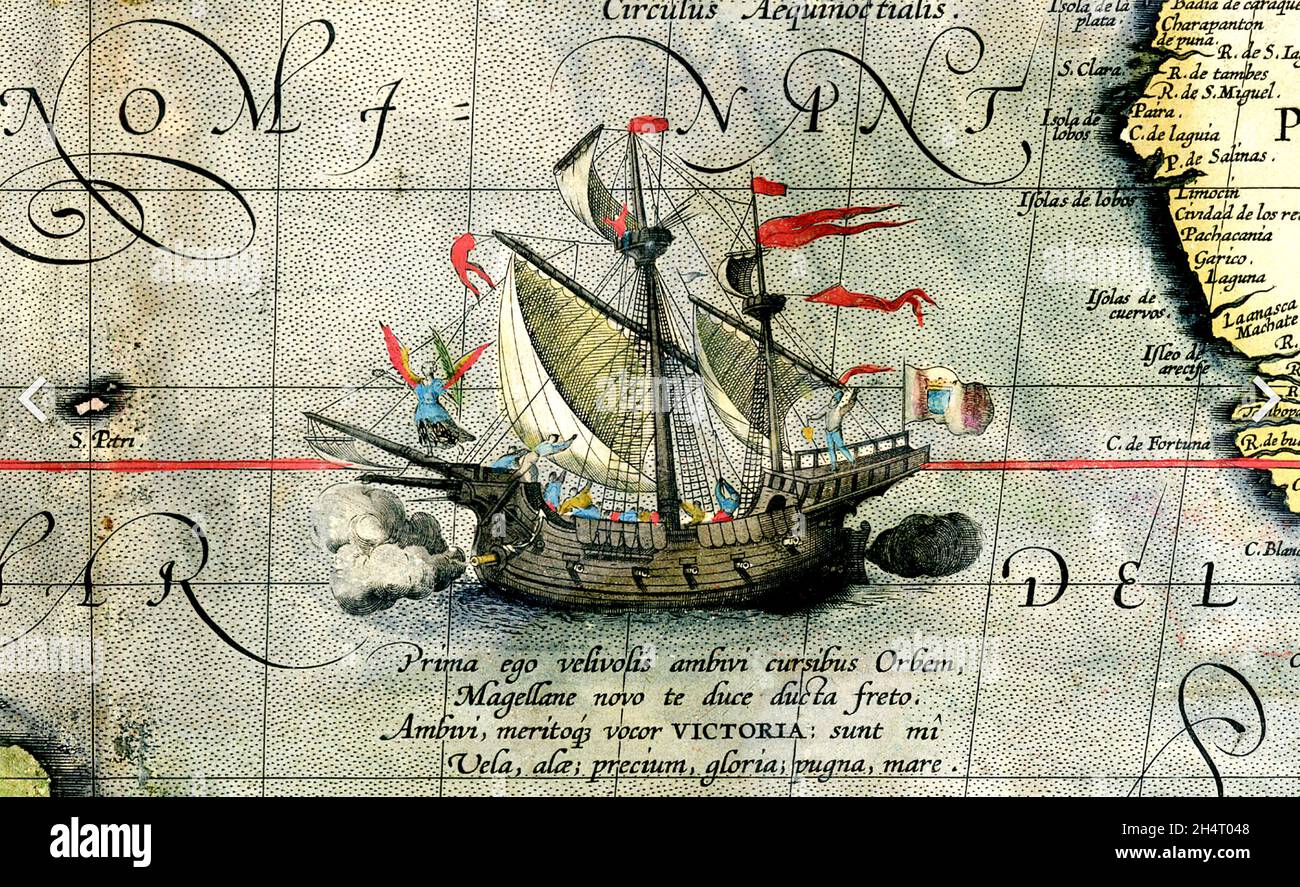 Circulus Aequinoctialis.
NOMI = NANT
Isola de la plata.
Badia de caraque
Charapanton
de puna.
R. de S. Iag
S. Clara.
R. de tambes
R. de S. Miguel.
Isola de lobos
Paira.
C. de laguia
P. de Salinas.
P
Isolas de lobos
Limocin
Cividad de los rei
Pachacania
Garico.
Laguna
Isolas de cuervos.
Laanasca
Machate
R.
Isleo de arecife
R
R
S. Petri
C. de Fortuna
R. de bu
C. Blan
AR DEL
Prima ego velivolis ambivi cursibus Orbem,
Magellane novo te duce ducta freto.
Ambivi, meritoq́ꝫ vocor VICTORIA: sunt mî
Vela, alæ; precium, gloria; pugna, mare.
alamy
Image ID: 2H4T048
www.alamy.com